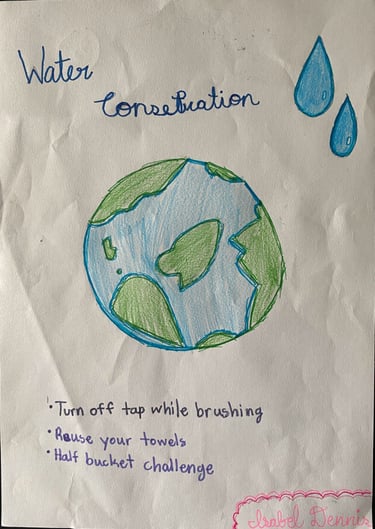 Water
Consetration
• Turn off tap while brushing
• Reuse your towels
• Half bucket challenge
Isabel Dennis